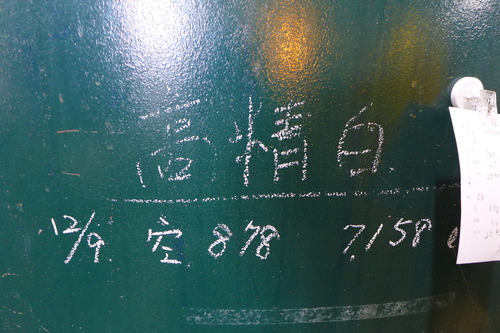 高精白
12/9 空 878 7158